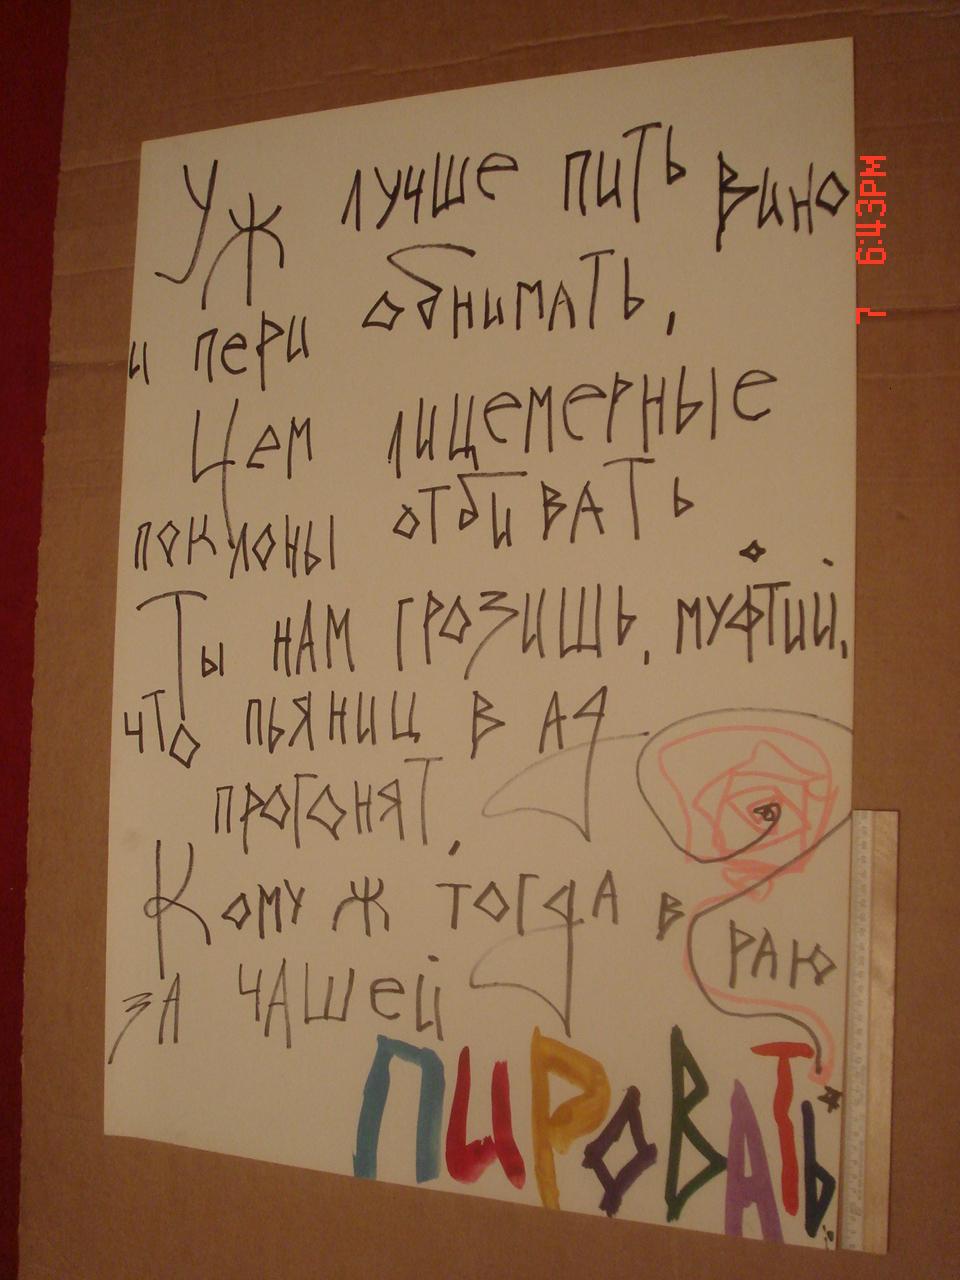 Уж лучше пить вино
и пери обнимать,
Чем лицемерные
поклоны отбивать
Ты нам грозишь, муфтий,
что пьяниц в ад
прогонят,
Кому ж тогда в раю
за чашей
ПИРОВАТЬ
7 6:43PM